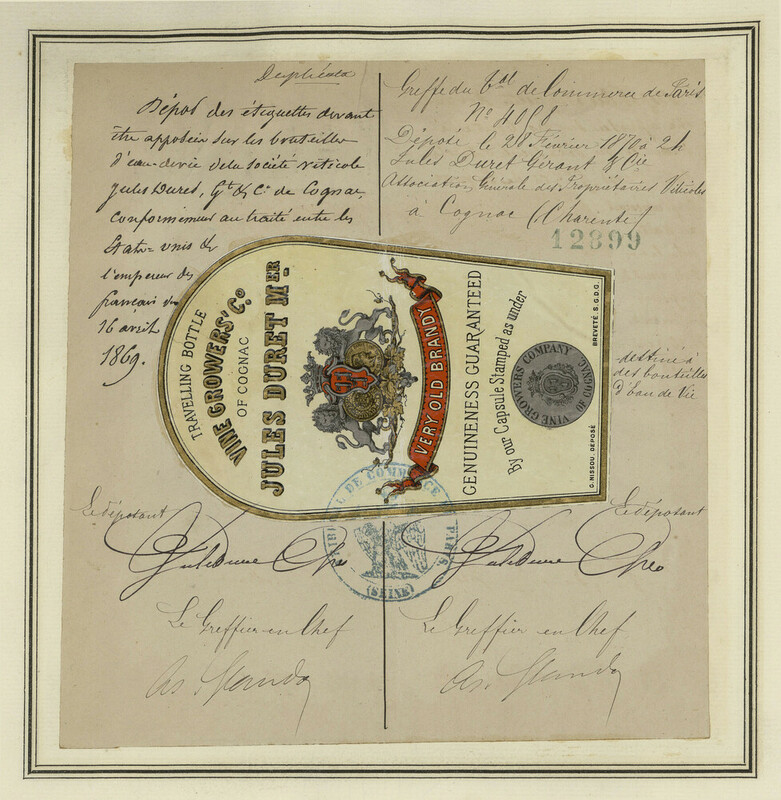 Duplicata
Dépôt des étiquettes devant
être apposées sur les bouteilles
d'eau-de-vie de la Société viticole
Jules Duret, Gt & Cie de Cognac,
conformément au traité entre les
États-unis &
l'empereur des
français du
16 avril
1869.
Greffe du Bal de Commerce de Paris
No 4068
Déposé le 28 Février 1870 à 2h
Jules Duret Gérant & Cie
Association Générale des Propriétaires Viticoles
à Cognac (Charente)
12899
destiné à
des bouteilles
d'Eau de Vie
TRAVELLING BOTTLE
VINE GROWERS' Co
OF COGNAC
JULES DURET MER
VERY OLD BRANDY
GENUINENESS GUARANTEED
By our Capsule Stamped as under
VINE GROWERS COMPANY OF COGNAC
C. NISSOU, DÉPOSÉ
BREVETÉ S.G.D.G.
TRIBUNAL DE COMMERCE PARIS
(SEINE)
Le déposant
Le déposant
Le Greffier en Chef
Le Greffier en Chef